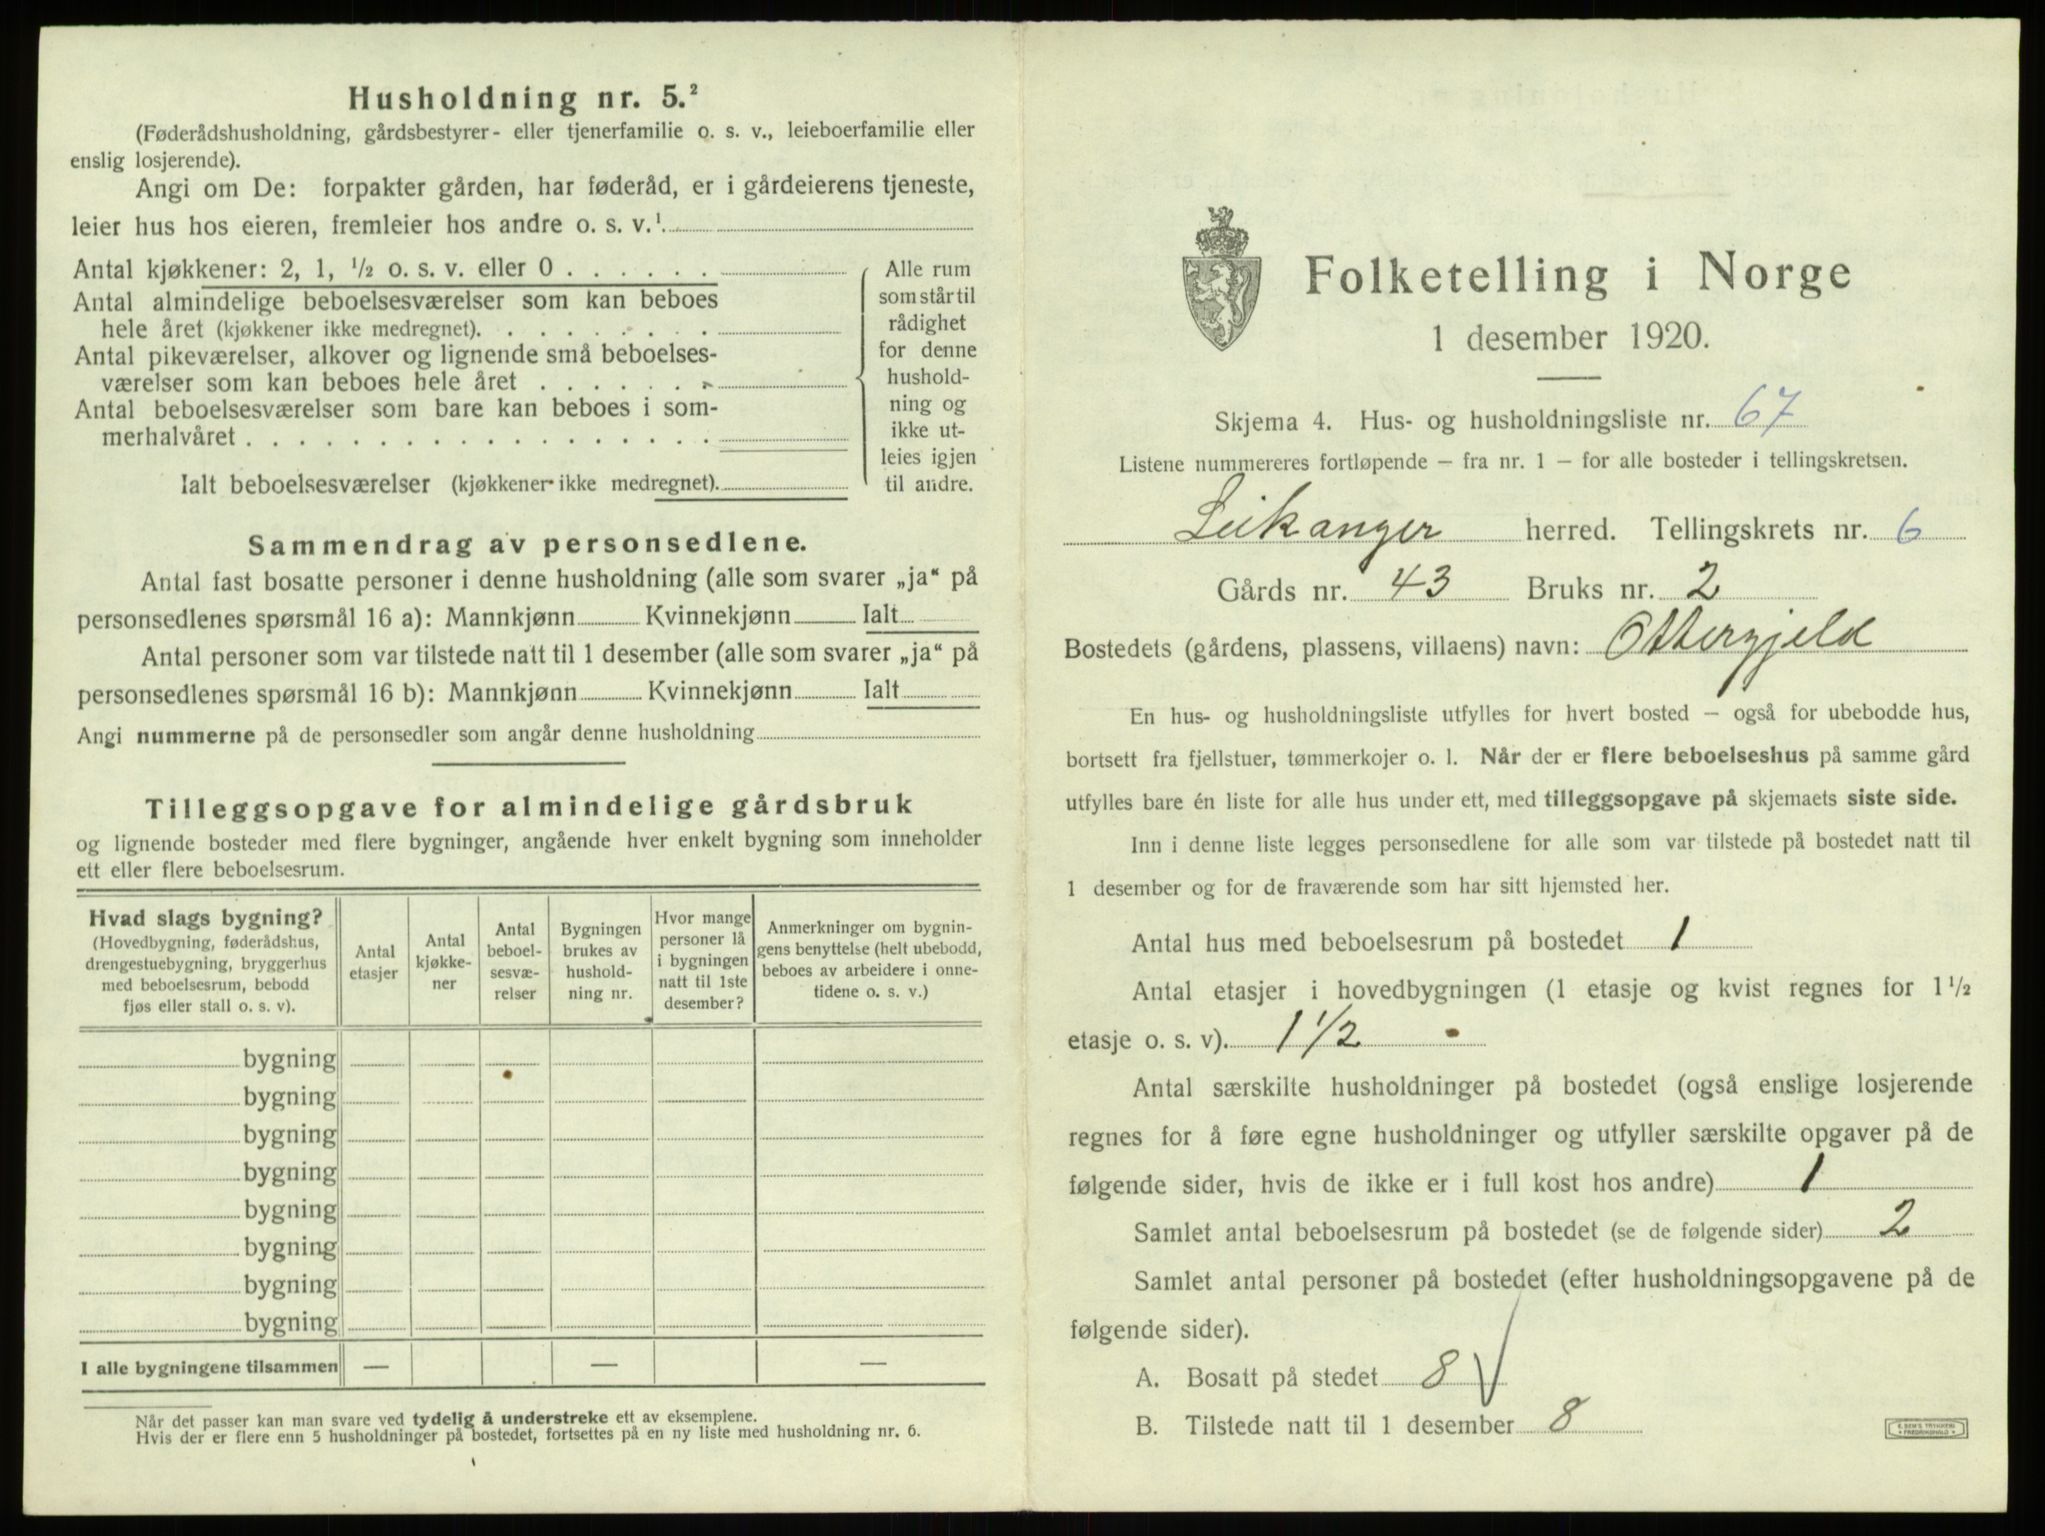 Husholdning nr. 5.²
(Føderådshusholdning, gårdsbestyrer- eller tjenerfamilie o. s. v., leieboerfamilie eller
enslig losjerende).
Angi om De: forpakter gården, har føderåd, er i gårdeierens tjeneste,
leier hus hos eieren, fremleier hos andre o. s. v.¹
Antal kjøkkener: 2, 1, ½ o. s. v. eller 0 . . . . . .
Antal almindelige beboelsesværelser som kan beboes
hele året (kjøkkener ikke medregnet). . . . . . . . .
Antal pikeværelser, alkover og lignende små beboelses-
værelser som kan beboes hele året . . . . . . .
Antal beboelsesværelser som bare kan beboes i som-
merhalvåret . . . . . . . . . . . . . . . . . .
Ialt beboelsesværelser (kjøkkener ikke medregnet).
Alle rum
som står til
rådighet
for denne
hushold-
ning og
ikke ut-
leies igjen
til andre.
Sammendrag av personsedlene.
Antal fast bosatte personer i denne husholdning (alle som svarer „ja“ på
personsedlenes spørsmål 16 a): Mannkjønn Kvinnekjønn Ialt
Antal personer som var tilstede natt til 1 desember (alle som svarer „ja“ på
personsedlenes spørsmål 16 b): Mannkjønn Kvinnekjønn Ialt
Angi nummerne på de personsedler som angår denne husholdning
Tilleggsopgave for almindelige gårdsbruk
og lignende bosteder med flere bygninger, angående hver enkelt bygning som inneholder
ett eller flere beboelsesrum.
Hvad slags bygning?
(Hovedbygning, føderådshus,
drengestuebygning, bryggerhus
med beboelsesrum, bebodd
fjøs eller stall o. s. v).
Antal
etasjer
Antal
kjøkke-
ner
Antal
beboel-
sesvæ-
relser
Bygningen
brukes av
hushold-
ning nr.
Hvor mange
personer lå
i bygningen
natt til 1ste
desember?
Anmerkninger om bygnin-
gens benyttelse (helt ubebodd,
beboes av arbeidere i onne-
tidene o. s. v.)
bygning
bygning
bygning
bygning
bygning
bygning
bygning
bygning
I alle bygningene tilsammen — — —
Når det passer kan man svare ved tydelig å understreke ett av eksemplene.
Hvis der er flere enn 5 husholdninger på bostedet, fortsettes på en ny liste med husholdning nr. 6.
Folketelling i Norge
1 desember 1920.
Skjema 4. Hus- og husholdningsliste nr. 67
Listene nummereres fortløpende — fra nr. 1 — for alle bosteder i tellingskretsen.
Leikanger herred. Tellingskrets nr. 6
Gårds nr. 43 Bruks nr. 2
Bostedets (gårdens, plassens, villaens) navn: Ottergjeld
En hus- og husholdningsliste utfylles for hvert bosted — også for ubebodde hus,
bortsett fra fjellstuer, tømmerkojer o. l. Når der er flere beboelseshus på samme gård
utfylles bare én liste for alle hus under ett, med tilleggsopgave på skjemaets siste side.
Inn i denne liste legges personsedlene for alle som var tilstede på bostedet natt til
1 desember og for de fraværende som har sitt hjemsted her.
Antal hus med beboelsesrum på bostedet 1
Antal etasjer i hovedbygningen (1 etasje og kvist regnes for 1½
etasje o. s. v). 1 1/2
Antal særskilte husholdninger på bostedet (også enslige losjerende
regnes for å føre egne husholdninger og utfyller særskilte opgaver på de
følgende sider, hvis de ikke er i full kost hos andre) 1
Samlet antal beboelsesrum på bostedet (se de følgende sider) 2
Samlet antal personer på bostedet (efter husholdningsopgavene på de
følgende sider).
A. Bosatt på stedet 8 √
B. Tilstede natt til 1 desember 8
E. SEM'S TRYKKERI
FREDRIKSHALD